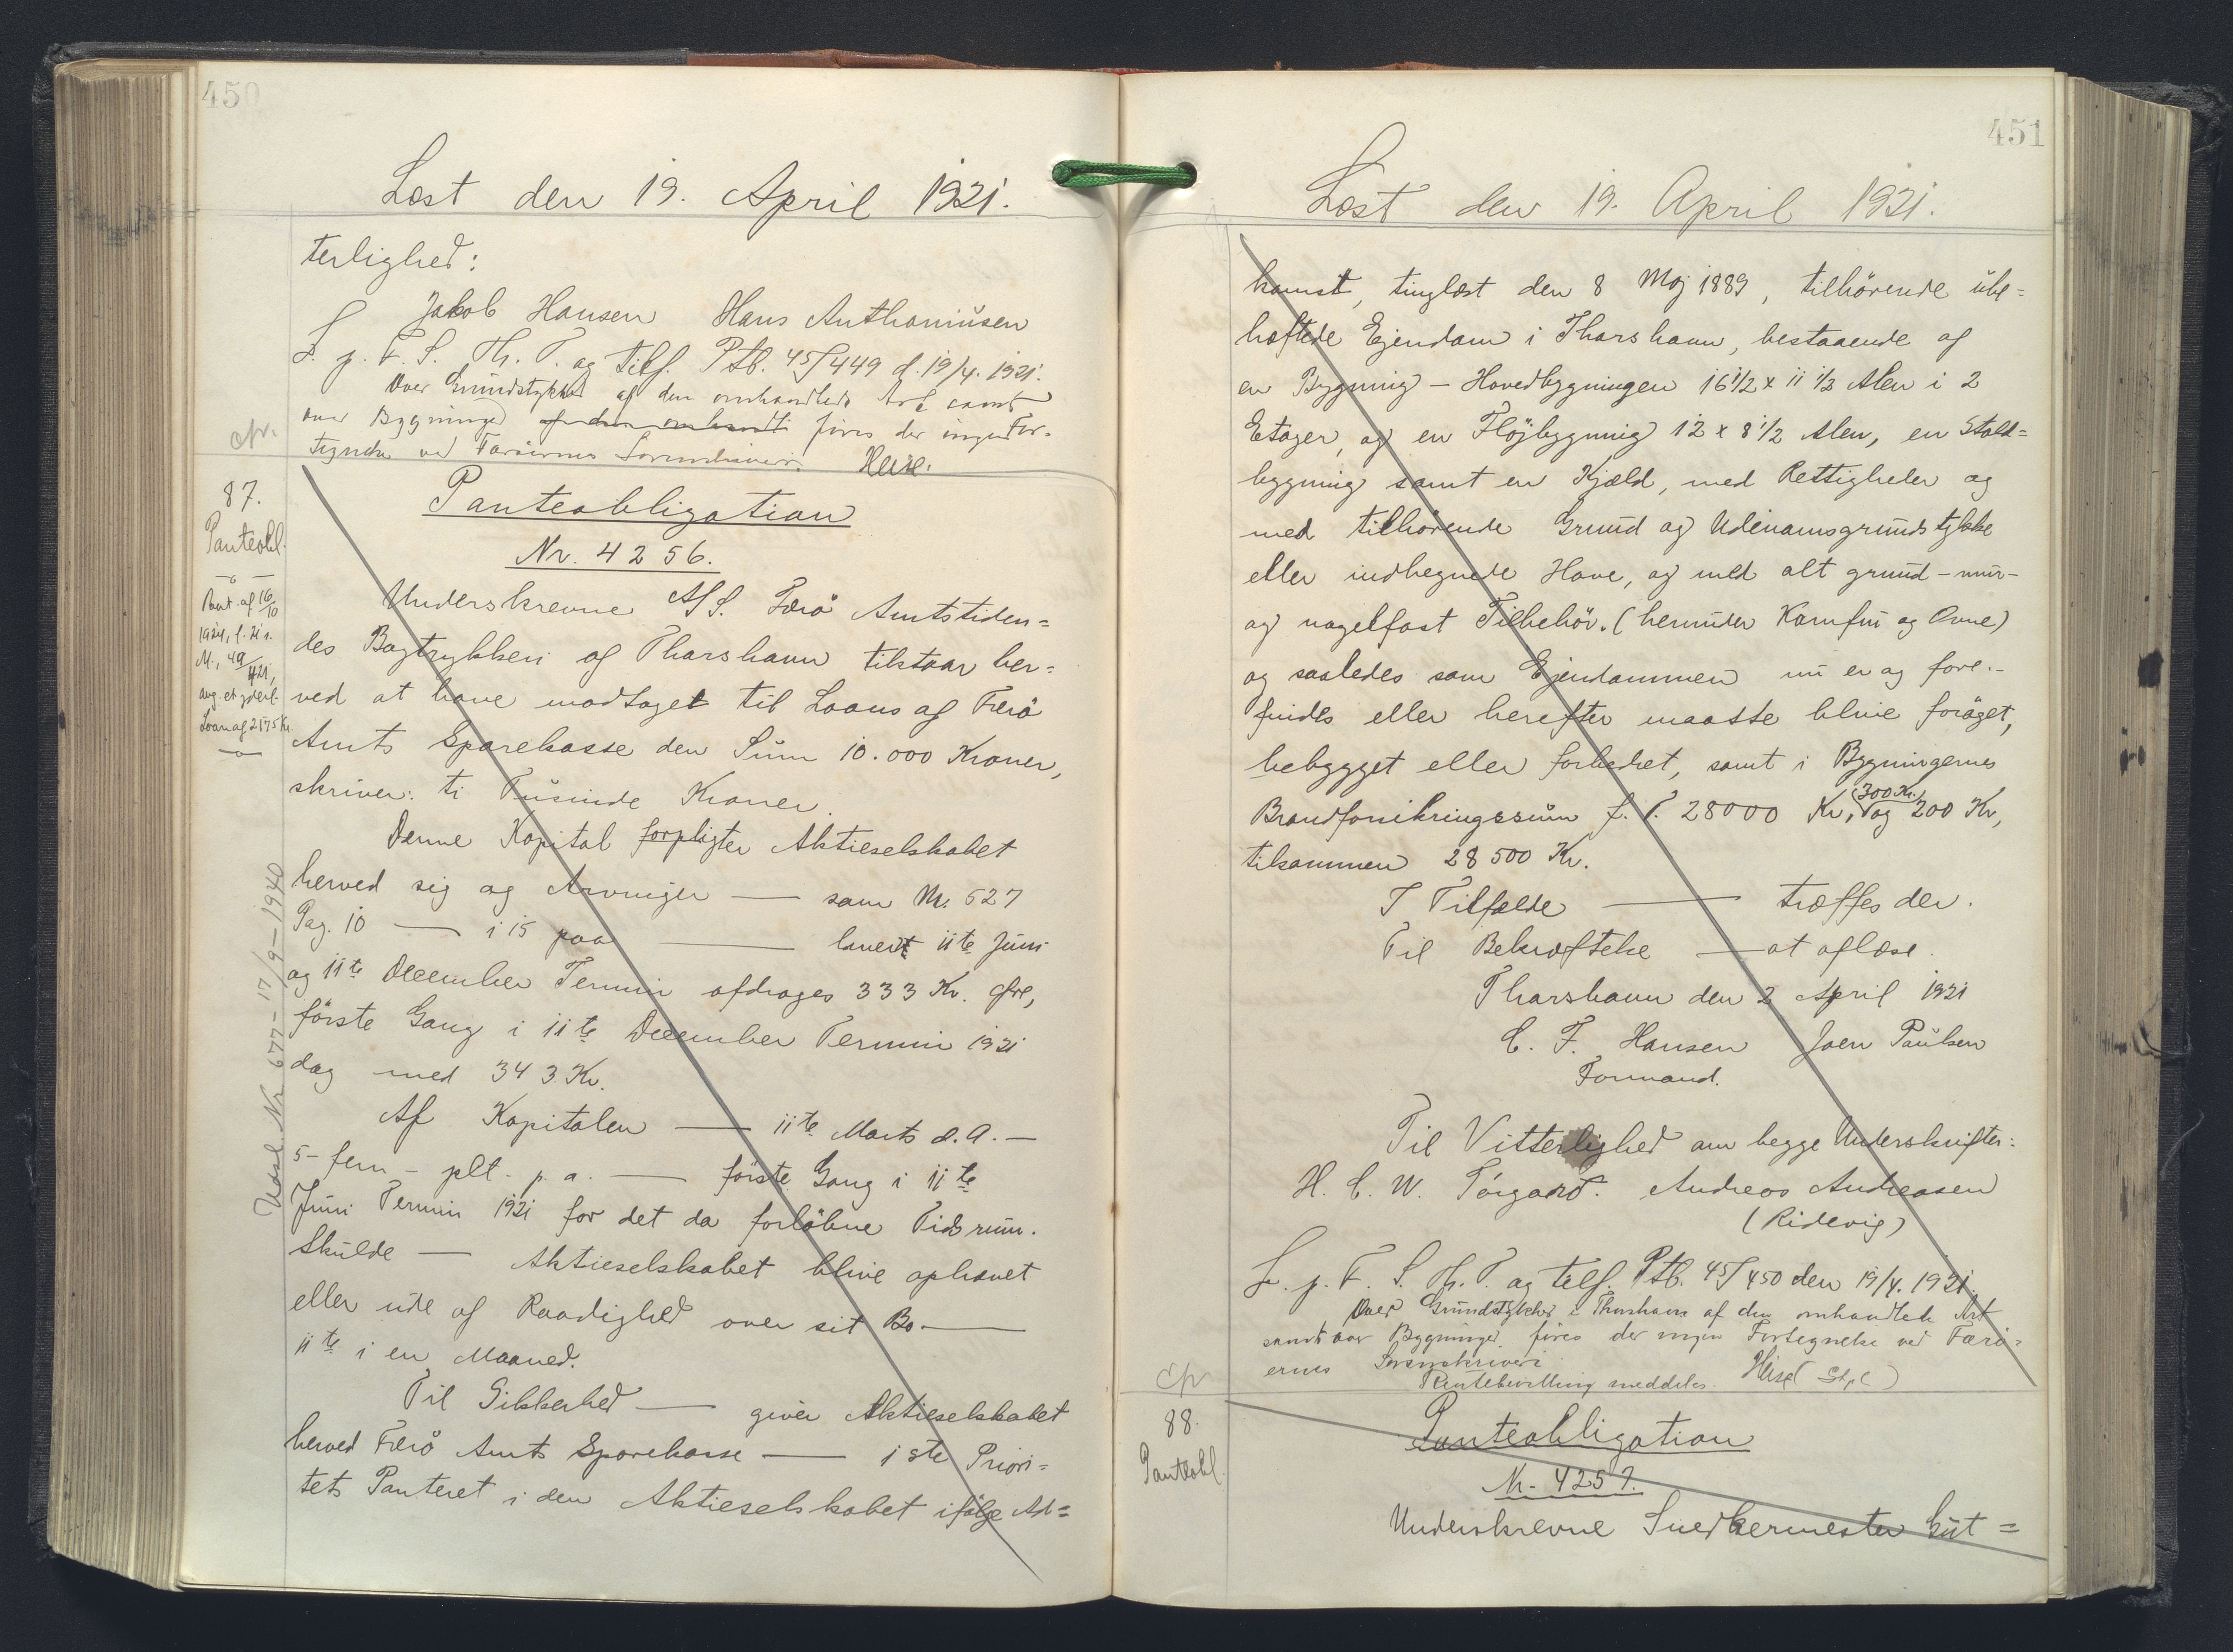 450
Læst den 19. April 1921.
terlighed:
Jakob Hansen Hans Anthoniusen
L. p. F. S. Th. T. og tilf. Ptb. 45/449 d. 19/4. 1921.
Over Grundstykket af den omhandlede Art samt
over Bygninger føres der ingen For-
tegnelse ved Færøernes Sorenskriveri.
cfr.
87.
Panteobl.
Panteobligation
Nr. 4256.
Underskrevne A/S. Færø Amtstiden=
des Bogtrykkeri af Thorshavn tilstaar her=
ved at have modtaget til Laans af Færø
Amts Sparekasse den Sum 10.000 Kroner,
skriver: ti Tusinde Kroner.
Denne Kapital forpligter Aktieselskabet
herved sig og Arvinger — som Nr. 527
Pag. 10 — i 15 paa — hvert 11te Juni
og 11te December Termin afdrages 333 Kr.
første Gang i 11te December Termin 1921
dog med 343 Kr.
Af Kapitalen — 11te Marts d. A. —
5 - fem - pCt. p. a. — første Gang i 11te
Juni Termin 1921 for det da forløbne Tidsrum.
Skulde — Aktieselskabet blive ophævet
eller ude af Raadighed over sit Bo —
11te i en Maaned.
Til Sikkerhed — giver Aktieselskabet
herved Færø Amts Sparekasse — 1ste Priori=
tets Panteret i den Aktieselskabet ifølge Ad=
Pant. af 16/10
1924, l. 21/1.
M., 49/421,
ang. et yderl.
Laan af 2175 Kr.
Udsl. Nr. 677 - 17/9 - 1940
451
Læst den 19. April 1921.
komst, tinglæst den 8 Maj 1889, tilhørende ube=
hæftede Ejendom i Thorshavn, bestaaende af
en Bygning - Hovedbygningen 16 1/2 x 11 1/3 Alen i 2
Etager, og en Fløjbygning 12 x 8 1/2 Alen, en Stald=
bygning samt en Kjæld, med Rettigheder og
med tilhørende Grund og Udenomsgrundstykke
eller indhegnede Have, og med alt grund - mur-
og nagelfast Tilbehør. (herunder Komfur og Ovne)
og saaledes som Ejendommen nu er og fore.-
findes eller herefter maatte blive forøget,
bebygget eller forbedret, samt i Bygningernes
Brandforsikringssum f. T. 28000 Kr, (300 Kr.) og 200 Kr,
tilsammen 28500 Kr.
I Tilfælde — træffes der.
Til Bekræftelse — at aflæse.
Thorshavn den 2 April 1921
C. F. Hansen Joen Paulsen
Formand.
Til Vitterlighed om begge Underskrifter:
H. C. W. Tórgarð. Andreas Andreasen
(Ridevig)
L. p. F. S. Th. T. og tilf. Ptb. 45/450 den 19/4. 1921
Over Grundstykker i Thorshavn af den omhandlede Art
samt over Bygninger føres der ingen Fortegnelse ved Færø=
ernes Sorenskriveri.
Rentebevilling meddeles.
cfr
88.
Panteobl.
Panteobligation
Nr. 4257.
Underskrevne Snedkermester Gut=